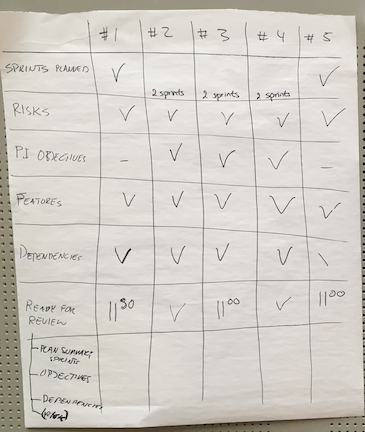 #1 #2 #3 #4 #5
SPRINTS PLANNED ✓ 2 sprints 2 sprints 2 sprints ✓
RISKS ✓ ✓ ✓ ✓ ✓
PI OBJECTIVES – ✓ ✓ ✓ –
FEATURES ✓ ✓ ✓ ✓ ✓
DEPENDENCIES ✓ ✓ ✓ ✓ \
READY FOR 11:30 ✓ 11:00 ✓ 11:00
REVIEW
PLAN SUMMARY
SPRINTS
OBJECTIVES
DEPENDENCIES